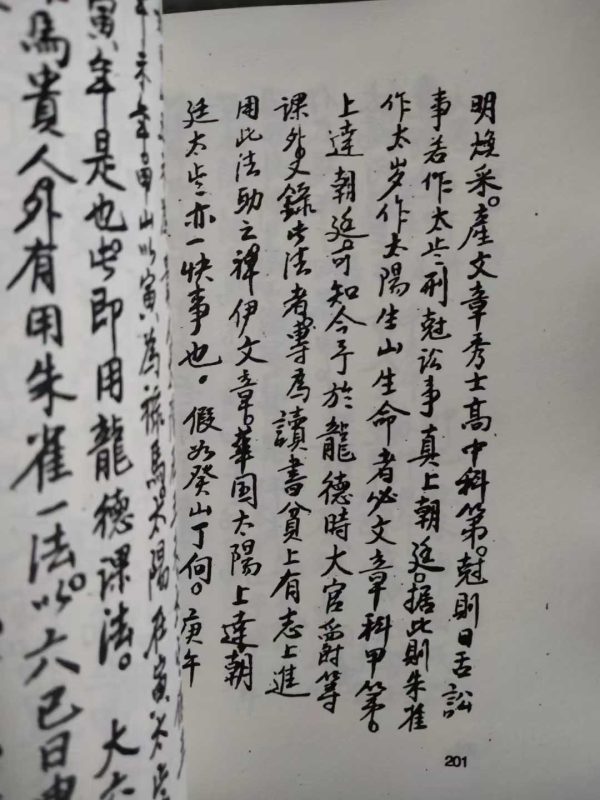 明煥采。產文章秀士高中科第。尅則日舌訟
事若作太歲刑尅訟事真上朝廷。據此則朱雀
作太岁作太陽生山生命者必文章科甲第。
上達朝廷可知今予於龍德時大官爵等
課外又錄此法者專為讀書貧上有志上進
用此法助之禆伊文章。華国太陽上達朝
廷太歲亦一快事也。假如癸山丁向。庚午
山以寅為祿馬。太陽在寅
寅年是也。此即用龍德課法。 大
馬貴人外有用朱雀一法。以六己日
201